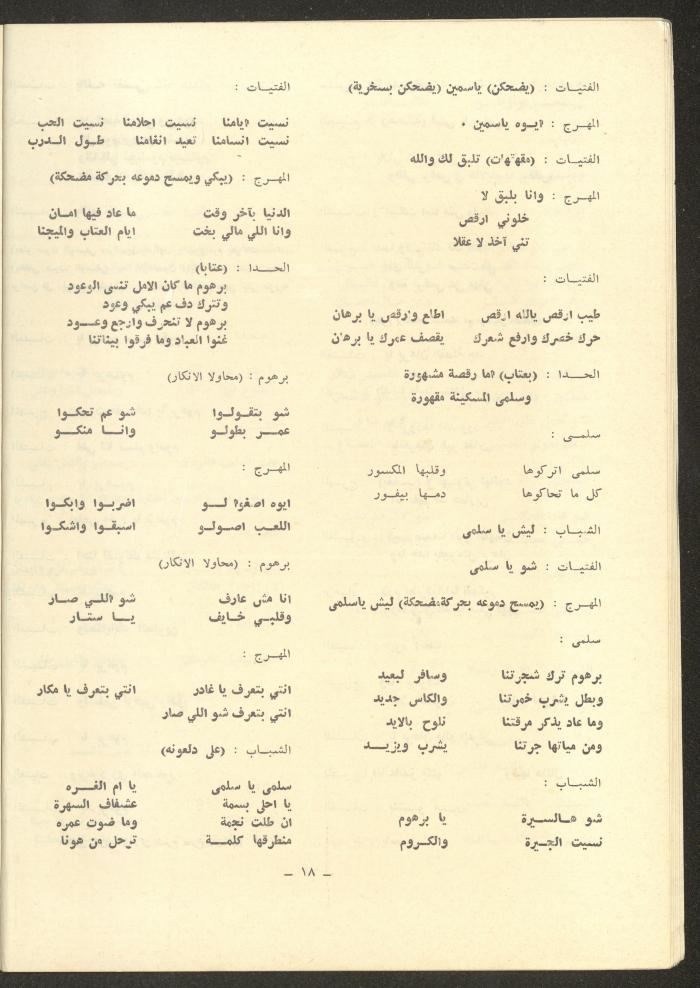 الفتيات : (يضحكن) ياسمين (يضحكن بسخرية)
المهرج : ايوه ياسمين .
الفتيات : (مقهقهات) تلبق لك والله
المهرج : وانا بلبق لا
خلوني ارقص
تني آخذ لا عقلا
الفتيات :
طيب ارقص يالله ارقص اطلع وارقص يا برهان
حرك خصرك وارفع شعرك يقصف عمرك يا برهان
الحدا : (بعتاب) اما رقصة مشهورة
وسلمى المسكينة مقهورة
سلمى :
سلمى اتركوها وقلبها المكسور
كل ما تحاكوها دمها بيفور
الشباب : ليش يا سلمى
الفتيات : شو يا سلمى
المهرج : (يمسح دموعه بحركة مضحكة) ليش ياسلمى
سلمى :
برهوم ترك شجرتنا وسافر لبعيد
وبطل يشرب خمرتنا والكاس جديد
وما عاد يذكر مرقتنا نلوح بالايد
ومن مياتها جرتنا يشرب ويزيد
الشباب :
شو هالسيرة يا برهوم
نسيت الجيرة والكروم
الفتيات :
نسيت ايامنا نسيت احلامنا نسيت الحب
نسيت انسامنا تعيد انغامنا طول الدرب
المهرج : (يبكي ويمسح دموعه بحركة مضحكة)
الدنيا بآخر وقت ما عاد فيها امان
وانا اللي مالي بخت ايام العتاب والميجنا
الحدا : (عتابا)
برهوم ما كان الامل تنسى الوعود
وتترك دف عم يبكي وعود
برهوم لا تنحرف وارجع وعود
غنوا العباد وما فرقوا بيناتنا
برهوم : (محاولا الانكار)
شو بتقولوا شو عم تحكوا
عمر بطولو وانا منكو
المهرج :
ايوه اصغوا لو اضربوا وابكوا
اللعب اصولو اسبقوا واشكوا
برهوم : (محاولا الانكار)
انا مش عارف شو اللي صار
وقلبي خايف يا ستار
المهرج :
انتي بتعرف يا غادر انتي بتعرف يا مكار
انتي بتعرف شو اللي صار
الشباب : (على دلعونه)
سلمى يا سلمى يا ام الغره
يا احلى بسمة عشفاف السهرة
ان طلت نجمة وما ضوت عمره
منطرقها كلمة ترحل من هونا
– ١٨ –